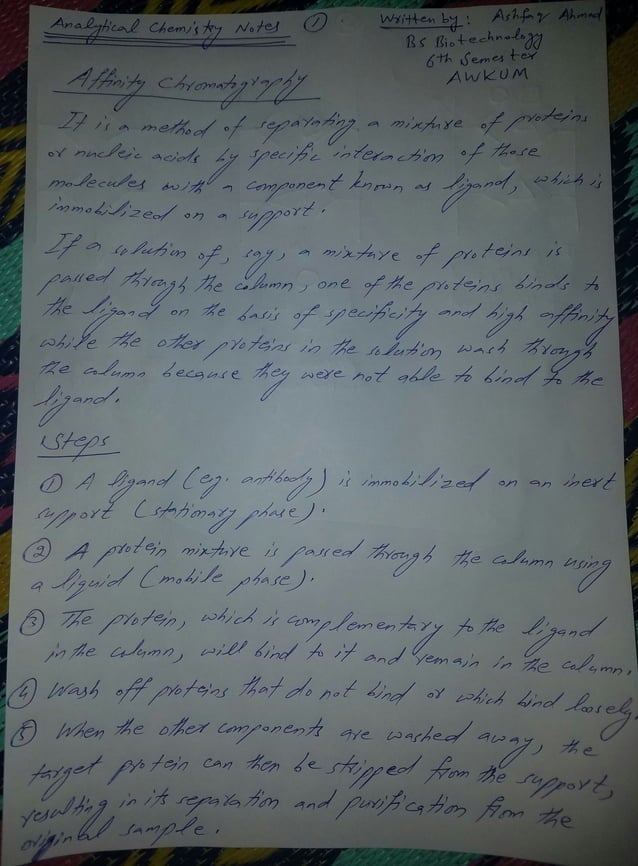 Analytical Chemistry Notes ① Written by: Ashfaq Ahmad
BS Biotechnology
6th Semester
AWKUM
Affinity Chromatography
It is a method of separating a mixture of proteins
or nucleic acids by specific interaction of those
molecules with a component known as ligand, which is
immobilized on a support.
If a solution of, say, a mixture of proteins is
passed through the column, one of the proteins binds to
the ligand on the basis of specificity and high affinity
while the other proteins in the solution wash through
the column because they were not able to bind to the
ligand.
Steps
① A ligand (eg. antibody) is immobilized on an inert
support (stationary phase).
② A protein mixture is passed through the column using
a liquid (mobile phase).
③ The protein, which is complementary to the ligand
in the column, will bind to it and remain in the column.
④ Wash off proteins that do not bind or which bind loosely.
⑤ When the other components are washed away, the
target protein can then be stripped from the support,
resulting in its separation and purification from the
original sample.